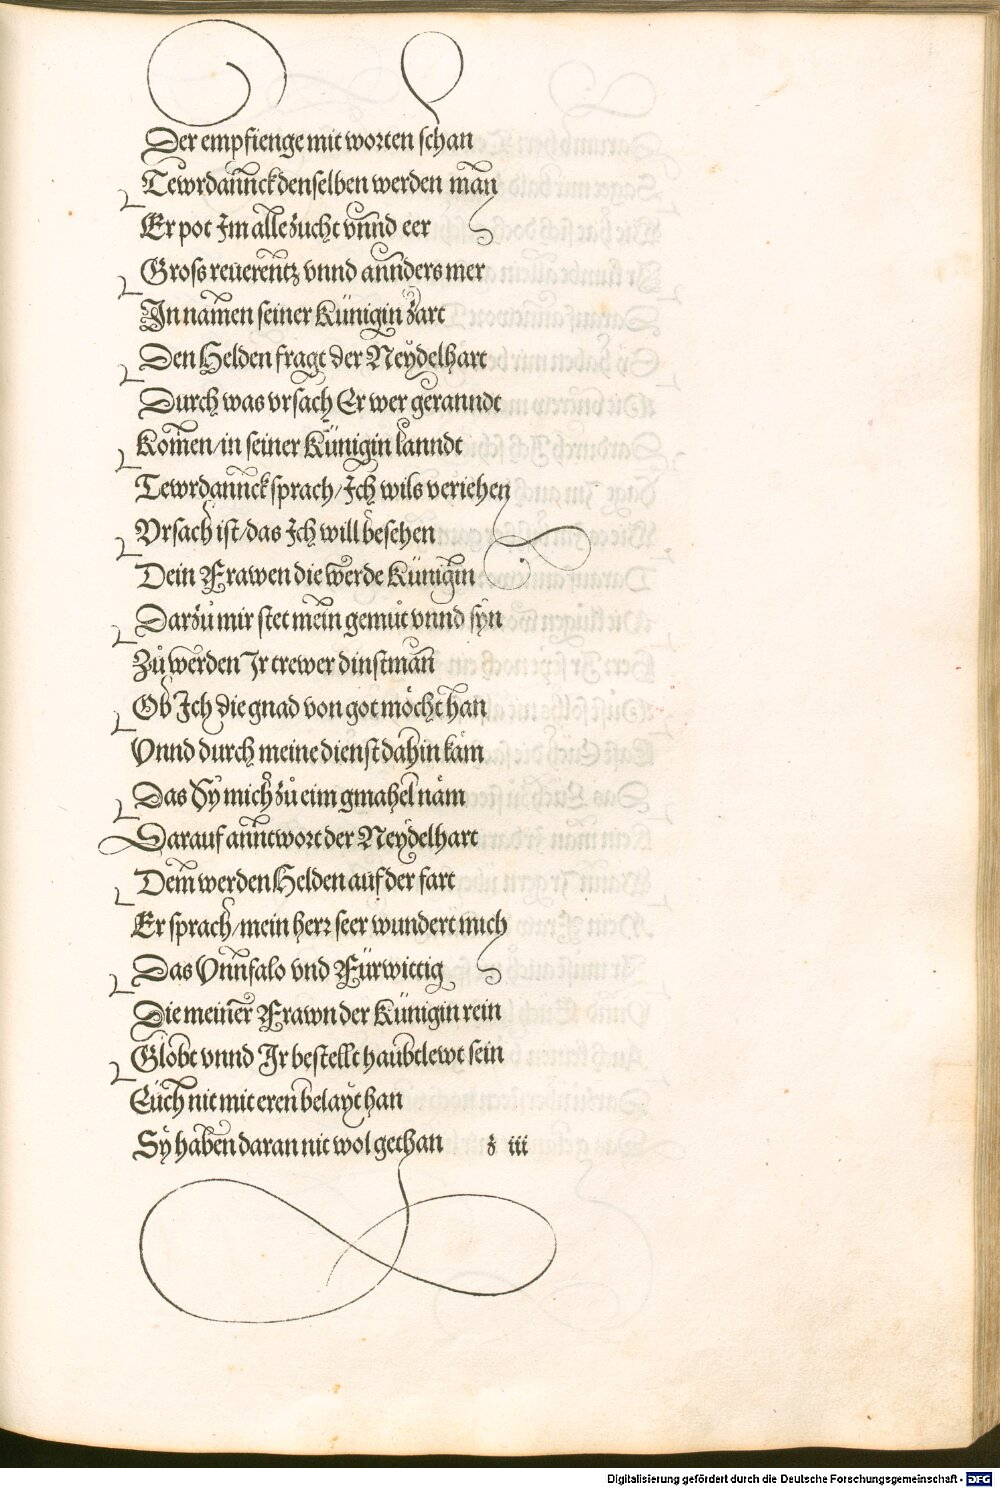 Der empfienge mit worten schan
Tewrdannck denselben werden man
Er pot Im alle zucht vnnd eer
Gross reuerentz vnnd annders mer
In namen seiner Künigin zart
Den Helden fragt der Neydelhart
Durch was vrsach Er wer geranndt
Komen/in seiner Künigin lanndt
Tewrdannck sprach/Ich wils veriehen
Vrsach ist/das Ich will besehen
Dein Frawen die werde Künigin
Darzů mir stet mein gemůt vnnd syn
Zů werden Ir trewer dinstman
Ob Ich die gnad von got möcht han
Vnnd durch meine dienst dahin käm
Das Sy mich zů eim gmahel näm
Darauf anntwort der Neydelhart
Dem werden Helden auf der fart
Er sprach/mein herr seer wundert mich
Das Vnnfalo vnd Fürwittig
Die meiner Frawn der Künigin rein
Globt vnnd Ir bestellt haubtlewt sein
Eüch nit mit eren belayt han
Sy haben daran nit wol gethan z iii
Digitalisierung gefördert durch die Deutsche Forschungsgemeinschaft - DFG